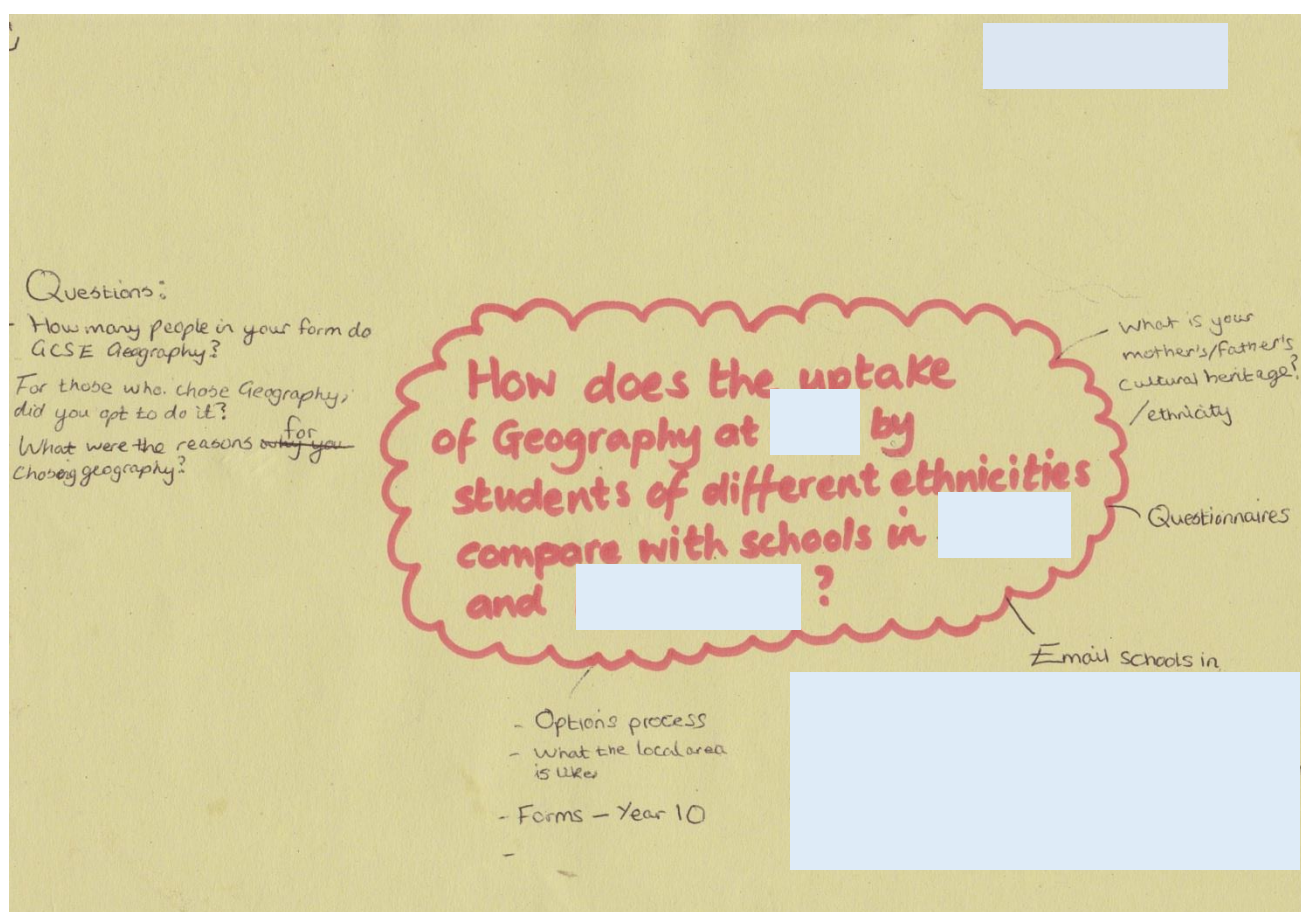 Questions:
- How many people in your form do
GCSE Geography?
For those who chose Geography,
did you opt to do it?
What were the reasons for why you
Chosing geography?
How does the uptake
of Geography at by
students of different ethnicities
compare with schools in
and ?
What is your
mother's/father's
cultural heritage?
/ethnicity
Questionnaires
Email schools in
- Options process
- What the local area
is like
- Forms – Year 10
-